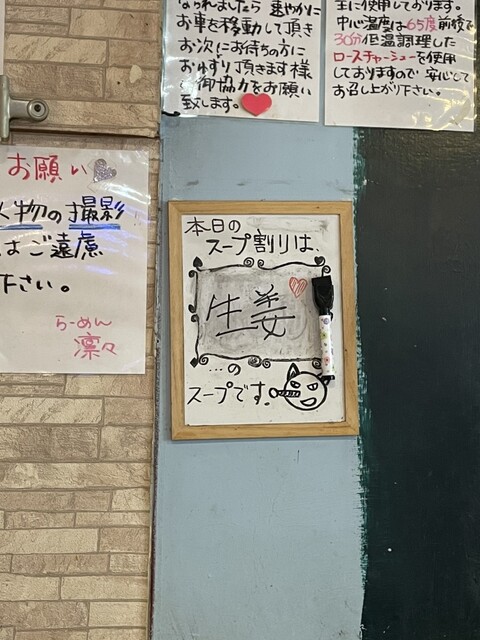 なられましたら 速やかに
お車を移動して頂き
お次にお待ちの方に
おゆずり頂きます様
御協力をお願い
致します。
主に使用しております。
中心温度は65度前後で
30分低温調理した
ローストチャーシューを使用
しておりますので 安心して
お召し上がり下さい。
お願い
人物の撮影
はご遠慮
下さい。
らーめん
凛々
本日の
スープ割りは、
生姜
…の
スープです。